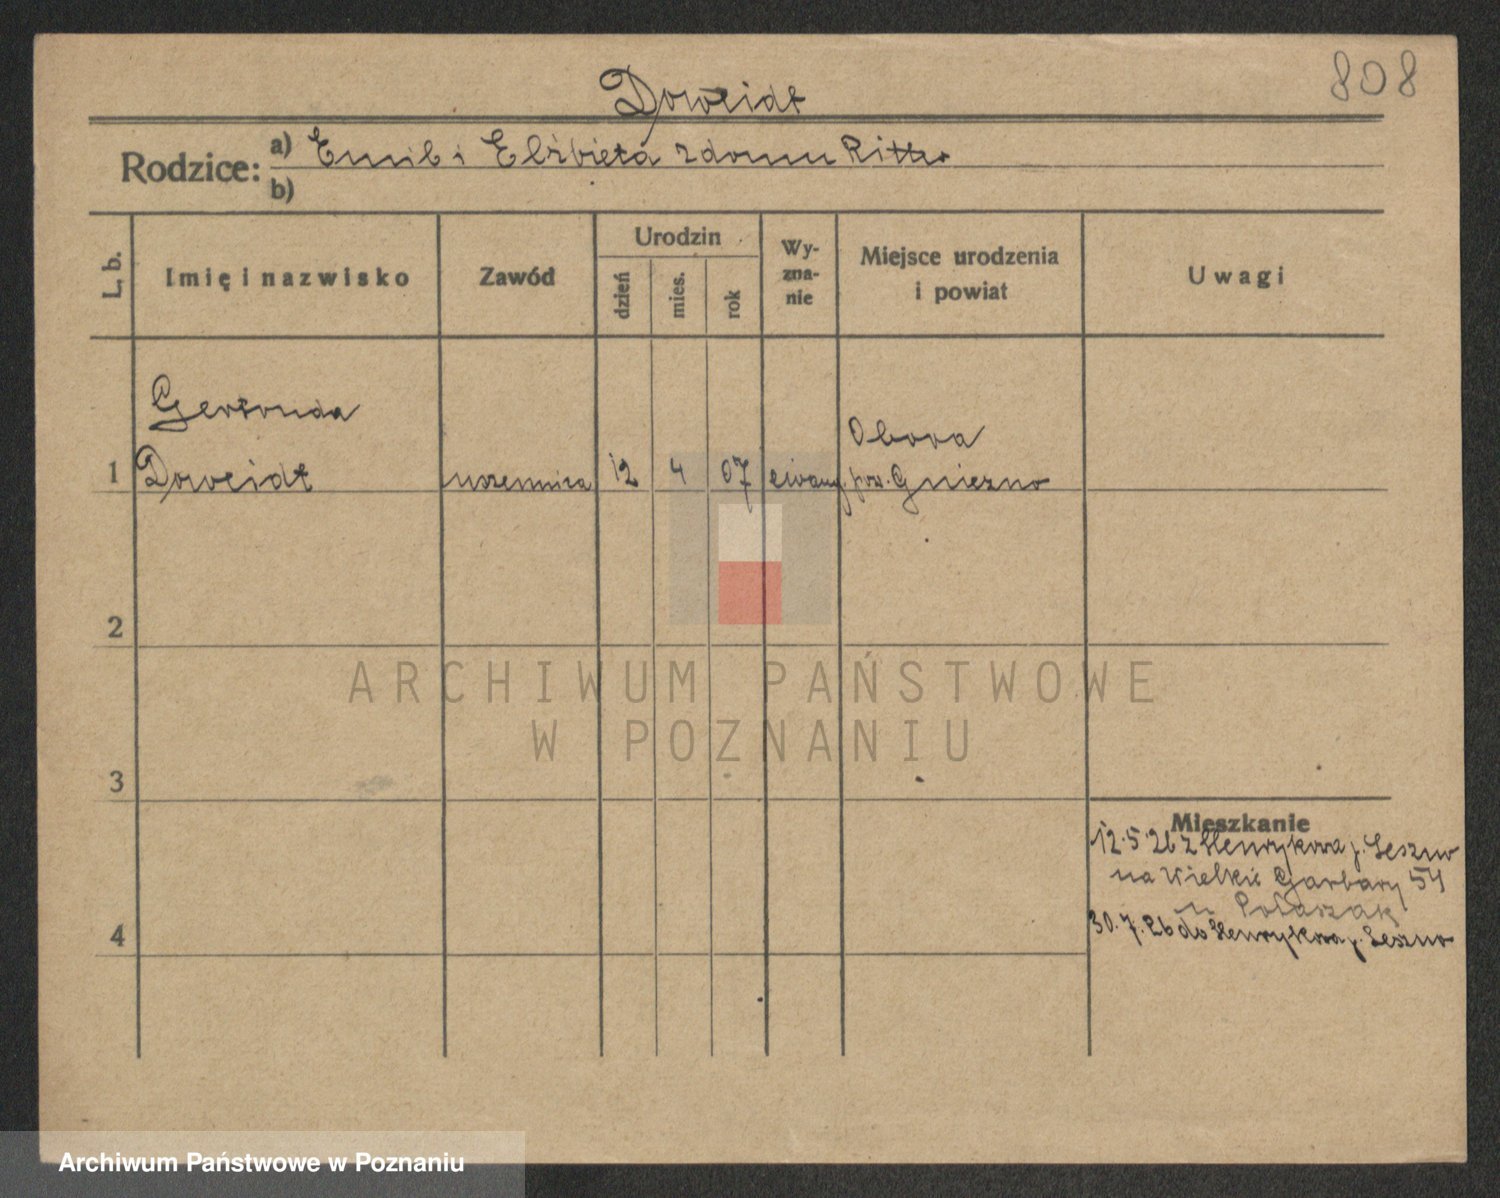 808
Doweidt
Rodzice: a) Emil i Elżbieta z domu Ritter
b)
L. b.
Imię i nazwisko
Zawód
Urodzin
dzień
mies.
rok
Wy-
zna-
nie
Miejsce urodzenia
i powiat
Uwagi
Gertruda
Obora
1 Doweidt uczennica 12 4 07 ewang. pow. Gniezno
2
ARCHIWUM PAŃSTWOWE
W POZNANIU
3
Mieszkanie
12.5.26 z Henrykowa p. Leszno
na Wielkie Garbary 54
u
30.7.26 do Henrykowa p. Leszno
4
Archiwum Państwowe w Poznaniu